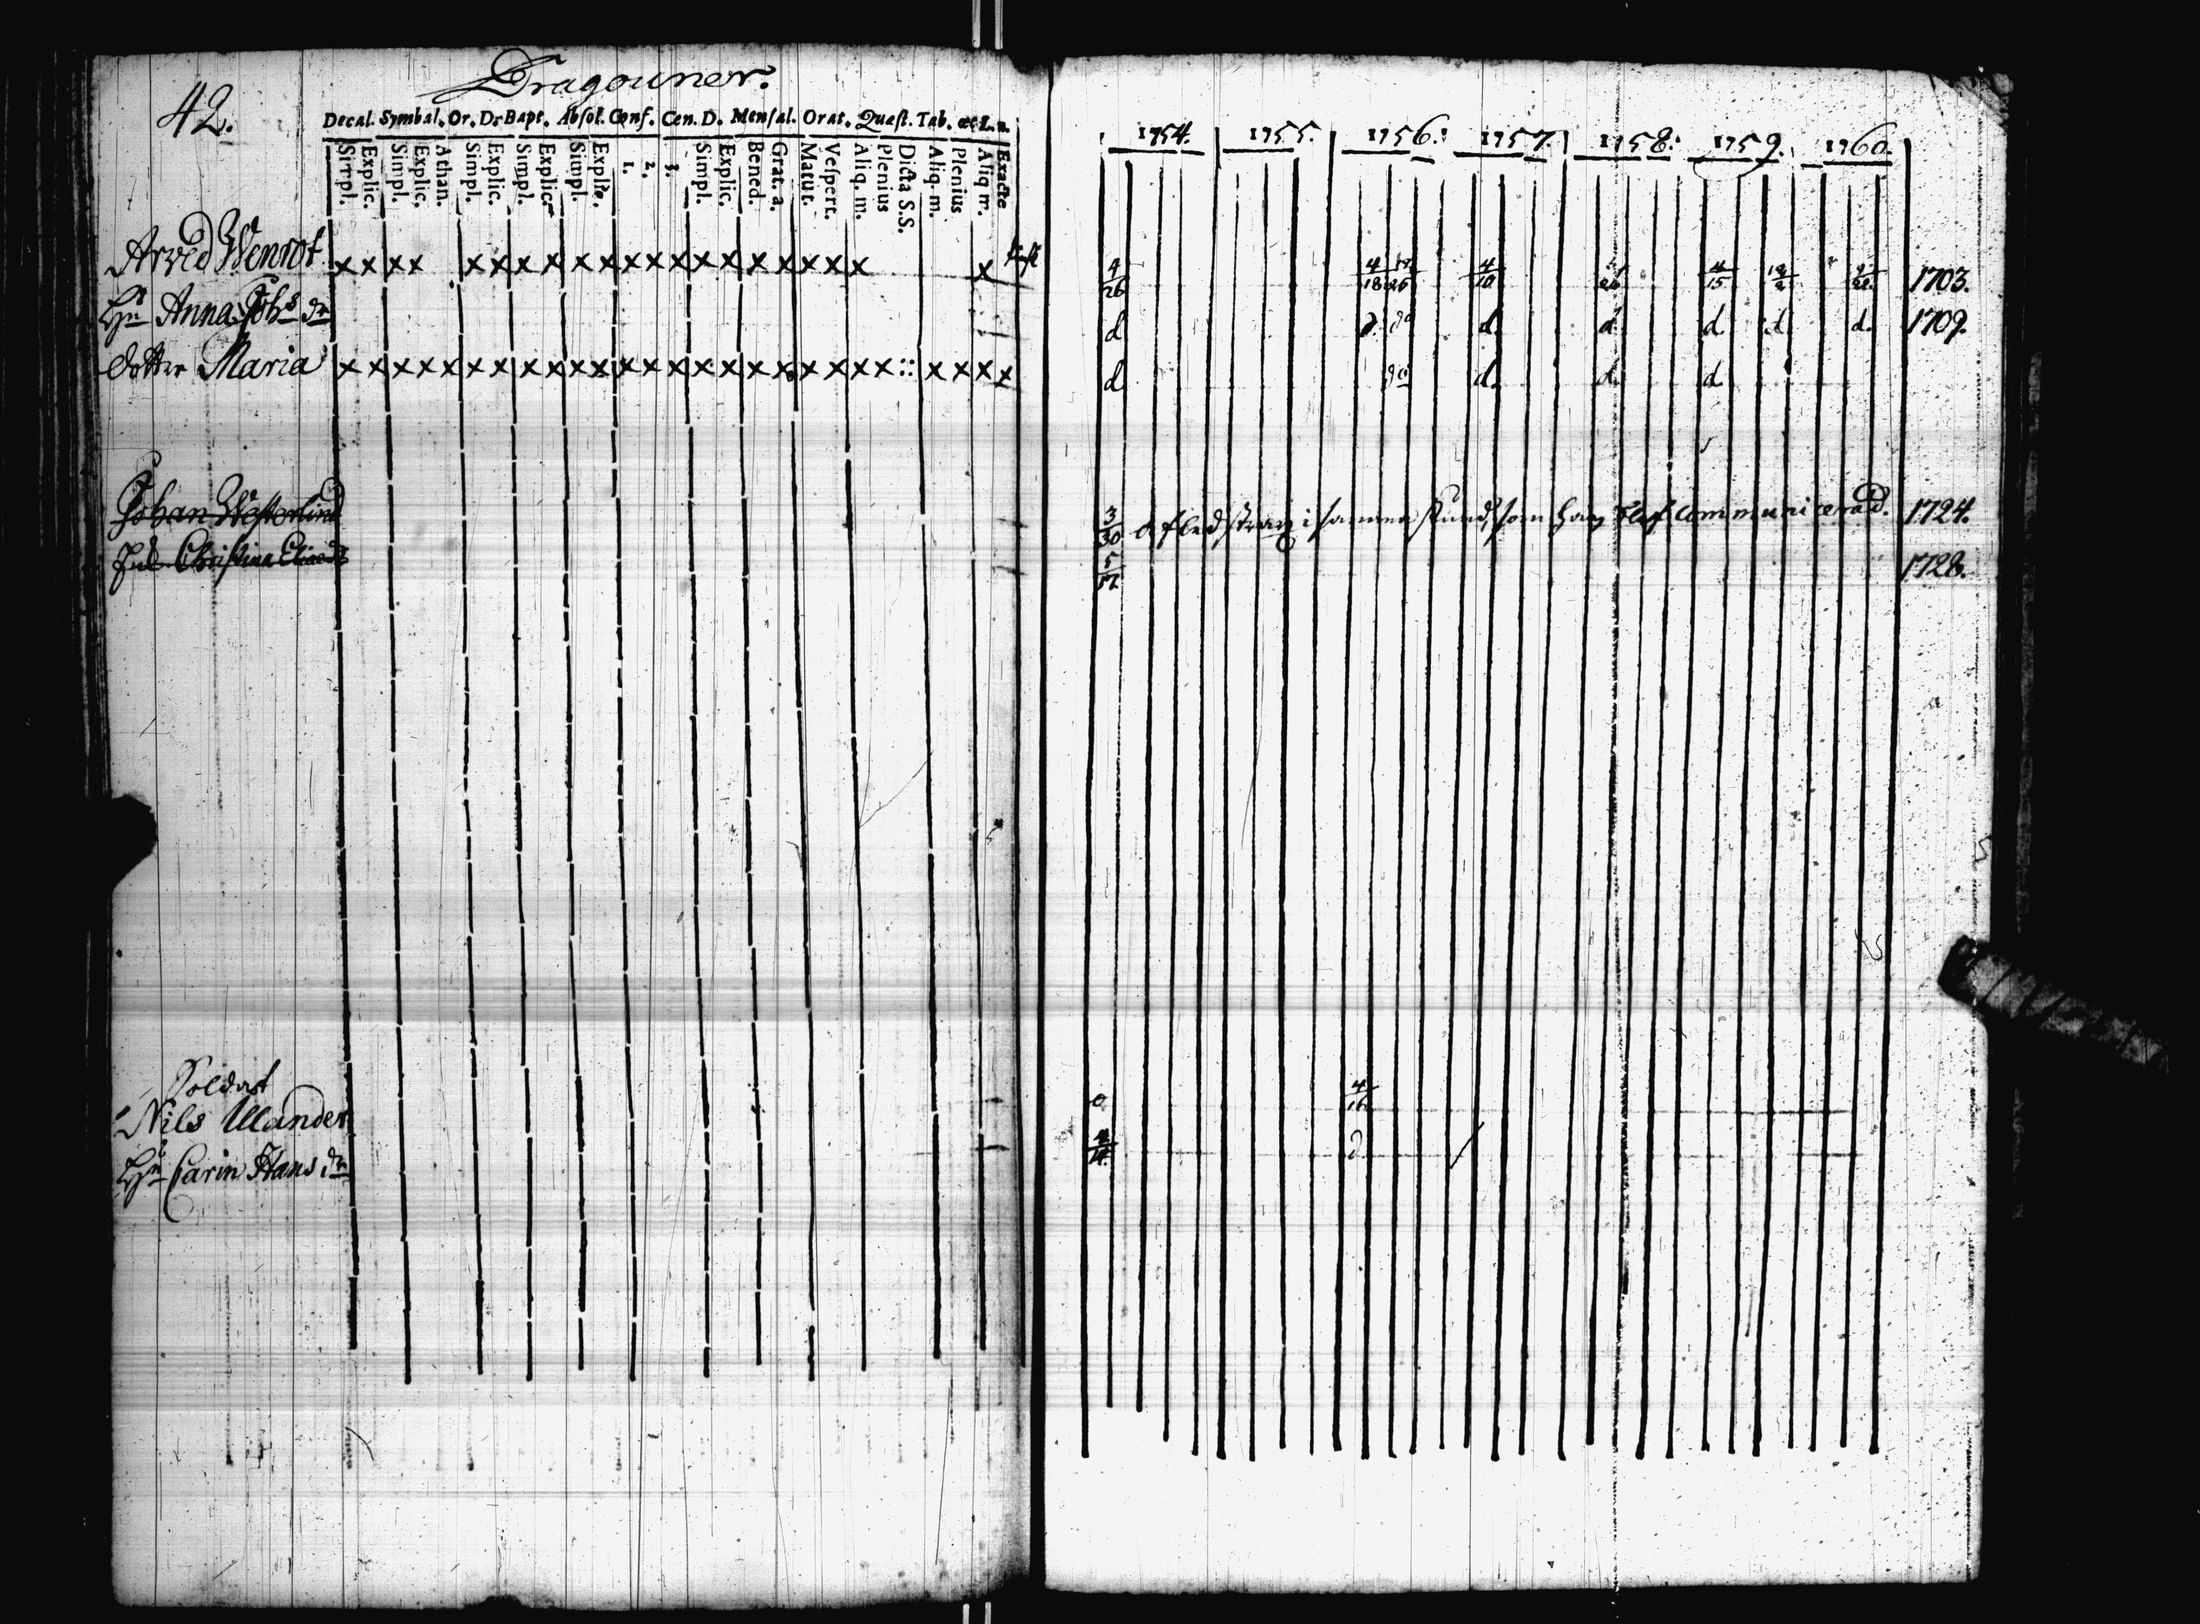 42.
Dragouner.
Decal. Symbal. Or. D. Bapt. Absol. Conf. Cen. D. Mensal. Orat. Quæst. Tab. œc. L. n.
Simpl. Explic. Simpl. Explic. Athan. Simpl. Explic. Simpl. Explic. Simpl. Explic. 1. 2. 3. Simpl. Explic. Bened. Grat. a. Matut. Vespert. Aliq. m. Plenius Dicta S.S. Aliq. m. Plenius Aliq m. Exacte
1754. 1755. 1756. 1757. 1758. 1759. 1760.
Arved Wenrot x x x x x x x x x x x x x x x x x x x x x 4/26 4/18 4/10 4/15 1703.
Hu Anna Johs dr d d d d d d d. 1709.
dotter Maria x x x x x x x x x x x x x x x x x x x x x x :: x x x x d d d d
Johan Westerlind 3/30 afled strax i samma stund, som han blef communicerad. 1724.
Christina 1728.
Soldat
Nils Ulander 0 4/16
Hu Carin Hans dr d